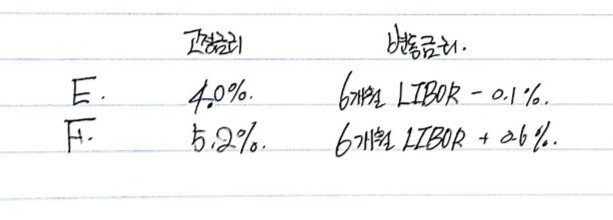 고정금리 변동금리.
E. 4.0%. 6개월 LIBOR - 0.1%.
F. 5.2%. 6개월 LIBOR + 0.6%.